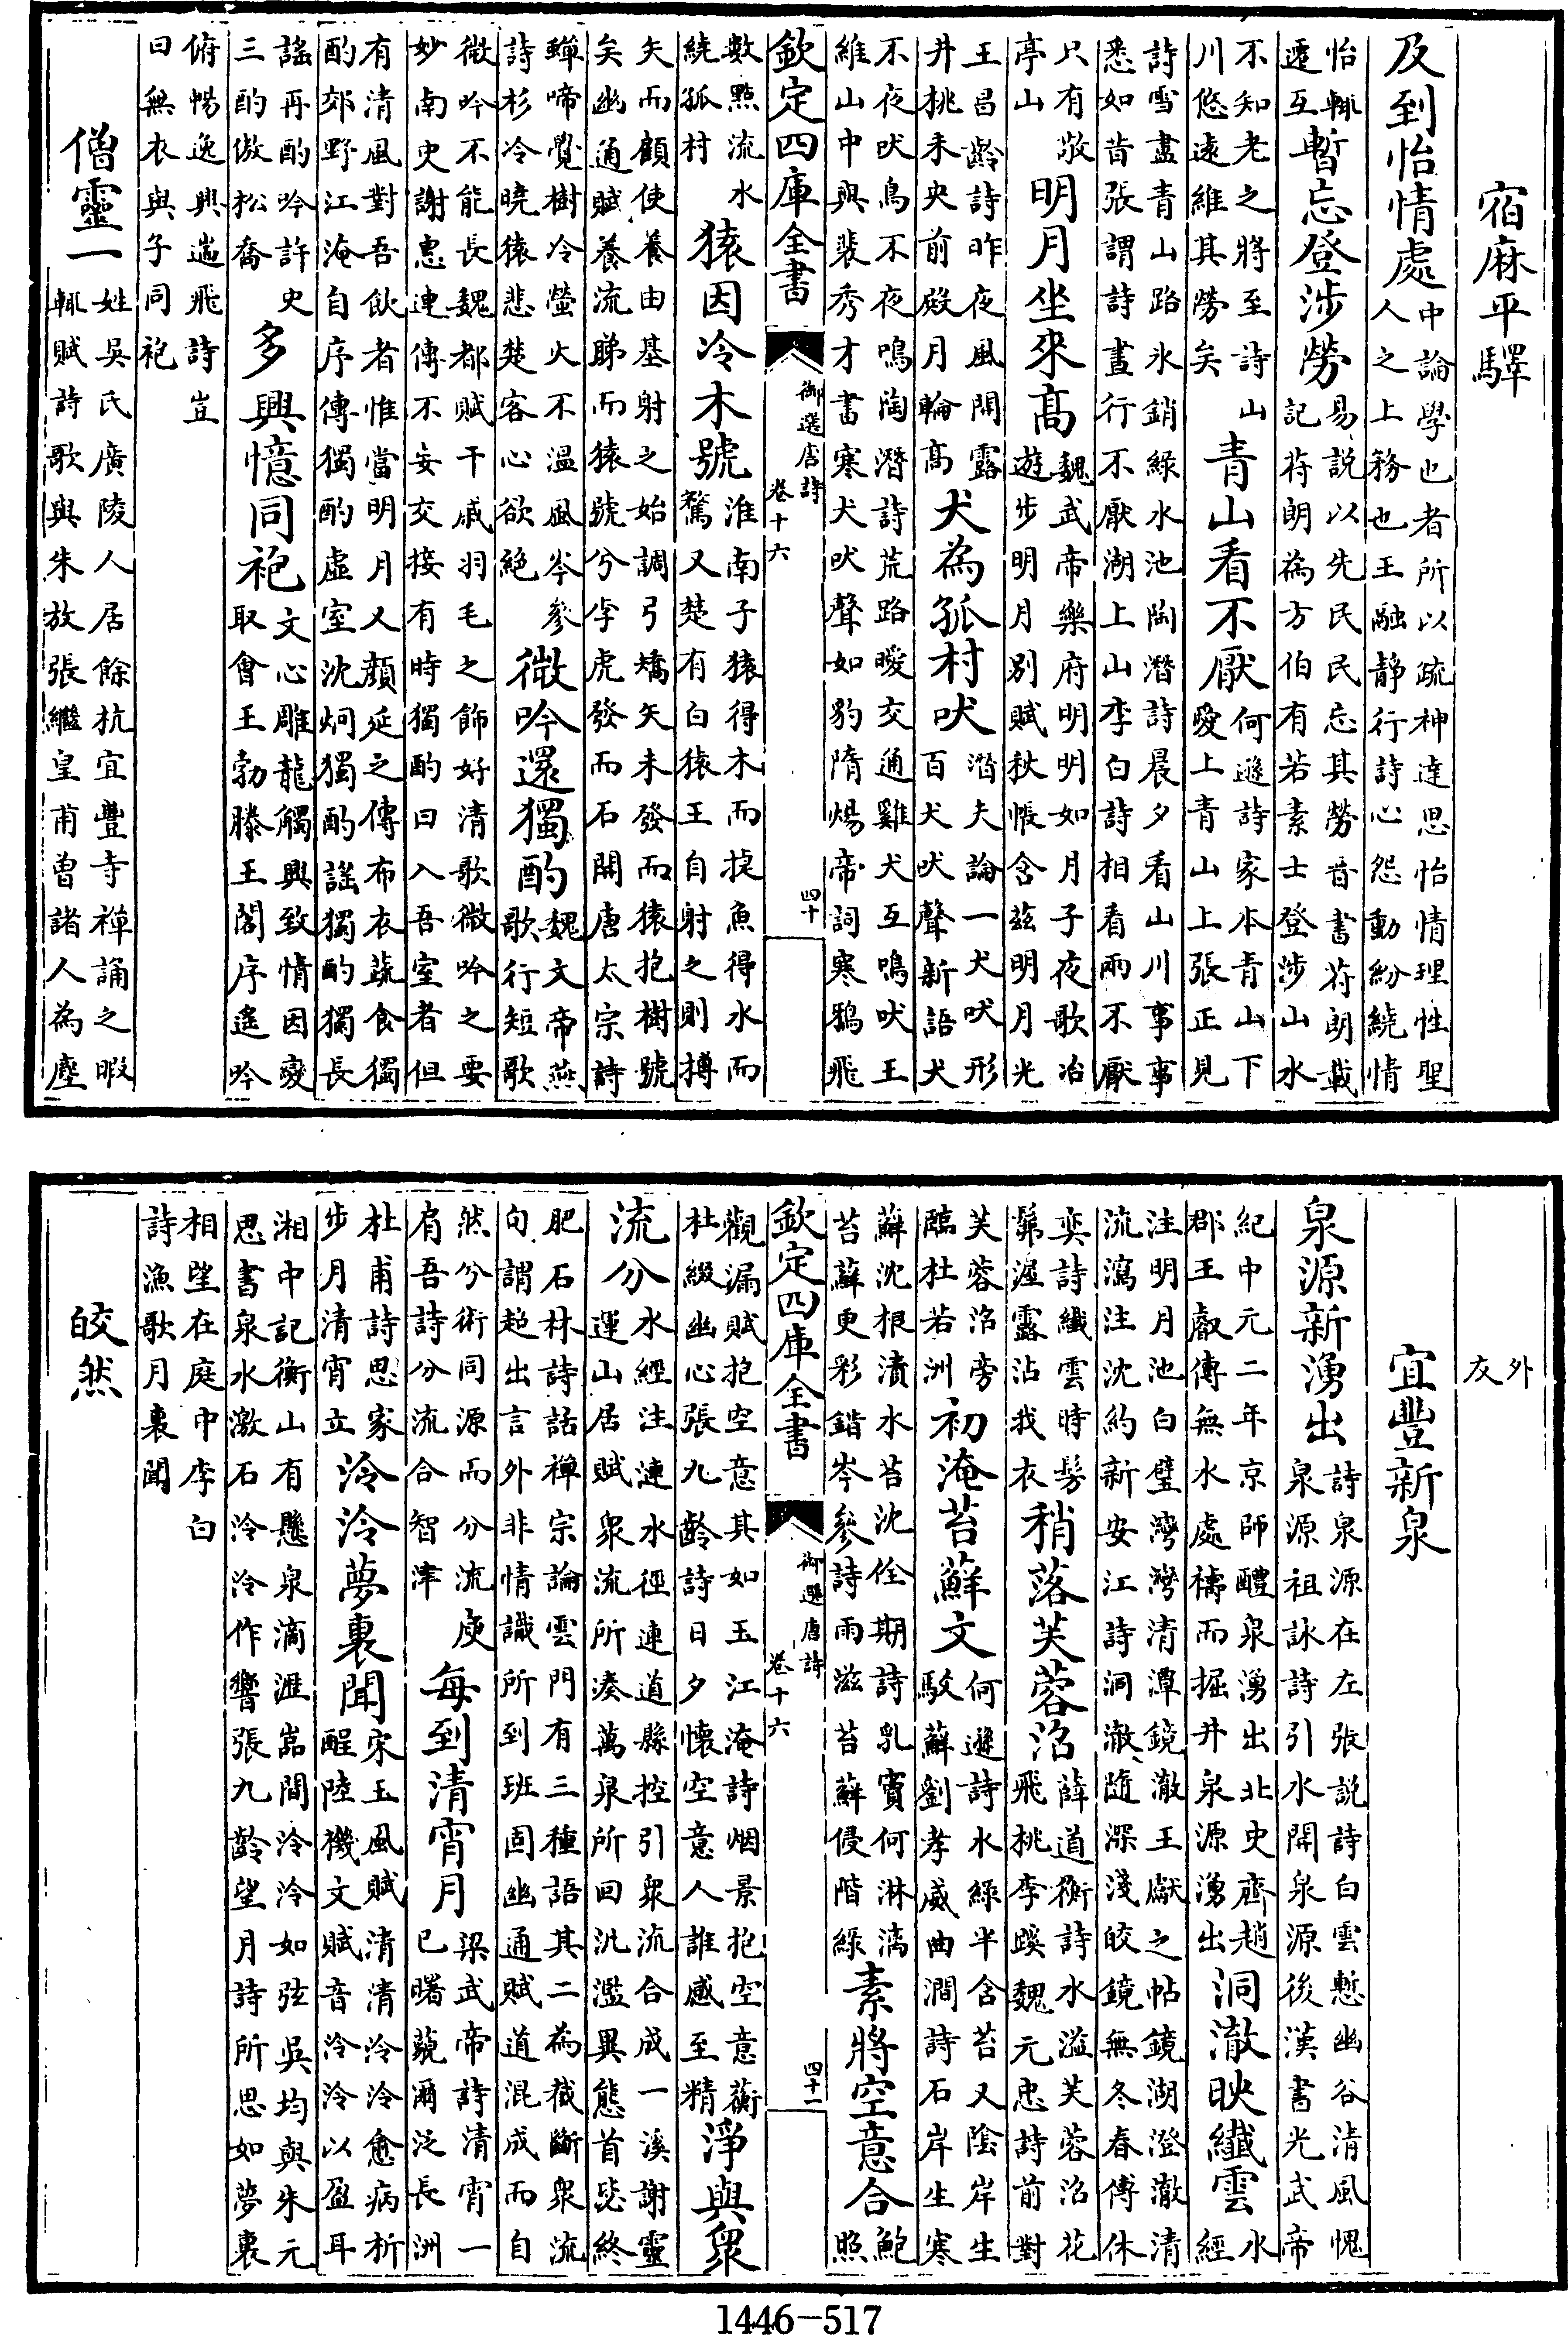 宿麻平驛
及到怡情處中論學也者所以疏神達思怡情理性聖人之上務也王融靜行詩心怨動紛繞情
怡輒遷互暫忘登涉勞易說以先民民忘其勞晉書苻朗載記苻朗為方伯有若素士登涉山水
不知老之將至詩山川悠遠維其勞矣青山看不厭何遜詩家本青山下愛上青山上張正見
詩雪盡青山路氷銷綠水池陶潛詩晨夕看山川事事悉如昔張謂詩晝行不厭湖上山李白詩相看兩不厭
只有敬亭山明月坐來高魏武帝樂府明明如月子夜歌冶遊步明月別賦秋帳含茲明月光
王昌齡詩昨夜風開露井桃未央前殿月輪高犬為孤村吠潛夫論一犬吠形百犬吠聲新語犬
不夜吠鳥不夜鳴陶潛詩荒路曖交通雞犬互鳴吠王維山中與裴秀才書寒犬吠聲如豹隋煬帝詞寒鴉飛
欽定四庫全書 御選唐詩 卷十六 四十
數點流水繞孤村猿因冷木號淮南子猿得木而捷魚得水而騖又楚有白猿王自射之則搏
矢而顧使養由基射之始調弓矯矢未發而猿抱樹號矣幽通賦養流睇而猿號兮李虎發而石開唐太宗詩
蟬啼覺樹冷螢火不溫風岑參詩杉冷曉猿悲楚客心欲絕微吟還獨酌魏文帝燕歌行短歌
微吟不能長魏都賦干戚羽毛之飾好清歌微吟之要妙南史謝惠連傳不妄交接有時獨酌曰入吾室者但
有清風對吾飲者惟當明月又顏延之傳布衣蔬食獨酌郊野江淹自序傳獨酌虛室沈炯獨酌謠獨酌獨長
謠再酌吟許史三酌傲松喬多興憶同袍文心雕龍觸興致情因變取會王勃滕王閣序遙吟
俯暢逸興遄飛詩豈曰無衣與子同袍
僧靈一姓吳氏廣陵人居餘杭宜豐寺禪誦之暇輒賦詩歌與朱放張繼皇甫曾諸人為塵
外友
宜豐新泉
泉源新湧出詩泉源在左張說詩白雲慙幽谷清風愧泉源祖詠詩引水開泉源後漢書光武帝
紀中元二年京師醴泉湧出北史齊趙郡王叡傳無水處禱而掘井泉源湧出洞澈映纖雲水經
注明月池白璧灣灣清潭鏡澈王獻之帖鏡湖澄澈清流瀉注沈約新安江詩洞澈隨深淺皎鏡無冬春傅休
奕詩纖雲時髣髴渥露沾我衣稍落芙蓉沼薛道衡詩水溢芙蓉沼花飛桃李蹊魏元忠詩前對
芙蓉沼旁臨杜若洲初淹苔蘚文何遜詩水綠半含苔又陰岸生駮蘚劉孝威曲澗詩石岸生寒
蘚沈根漬水苔沈佺期詩乳竇何淋漓苔蘚更彩錯岑參詩雨滋苔蘚侵階綠素將空意合鮑照
欽定四庫全書 御選唐詩 卷十六 四十一
觀漏賦抱空意其如玉江淹詩烟景抱空意蘅杜綴幽心張九齡詩日夕懷空意人誰感至精淨與衆
流分水經注漣水徑連道縣控引衆流合成一溪謝靈運山居賦衆流所湊萬泉所回氿濫異態首毖終
肥石林詩話禪宗論雲門有三種語其二為截斷衆流句謂超出言外非情識所到班固幽通賦道混成而自
然兮術同源而分流庾肩吾詩分流合智津每到清宵月梁武帝詩清宵一已曙藐爾泛長洲
杜甫詩思家步月清宵立泠泠夢裏聞宋玉風賦清清泠泠愈病析酲陸機文賦音泠泠以盈耳
湘中記衡山有懸泉滴瀝嵓間泠泠如弦吳均與朱元思書泉水激石泠泠作響張九齡望月詩所思如夢裏
相望在庭中李白詩漁歌月裏聞
皎然
1446-517